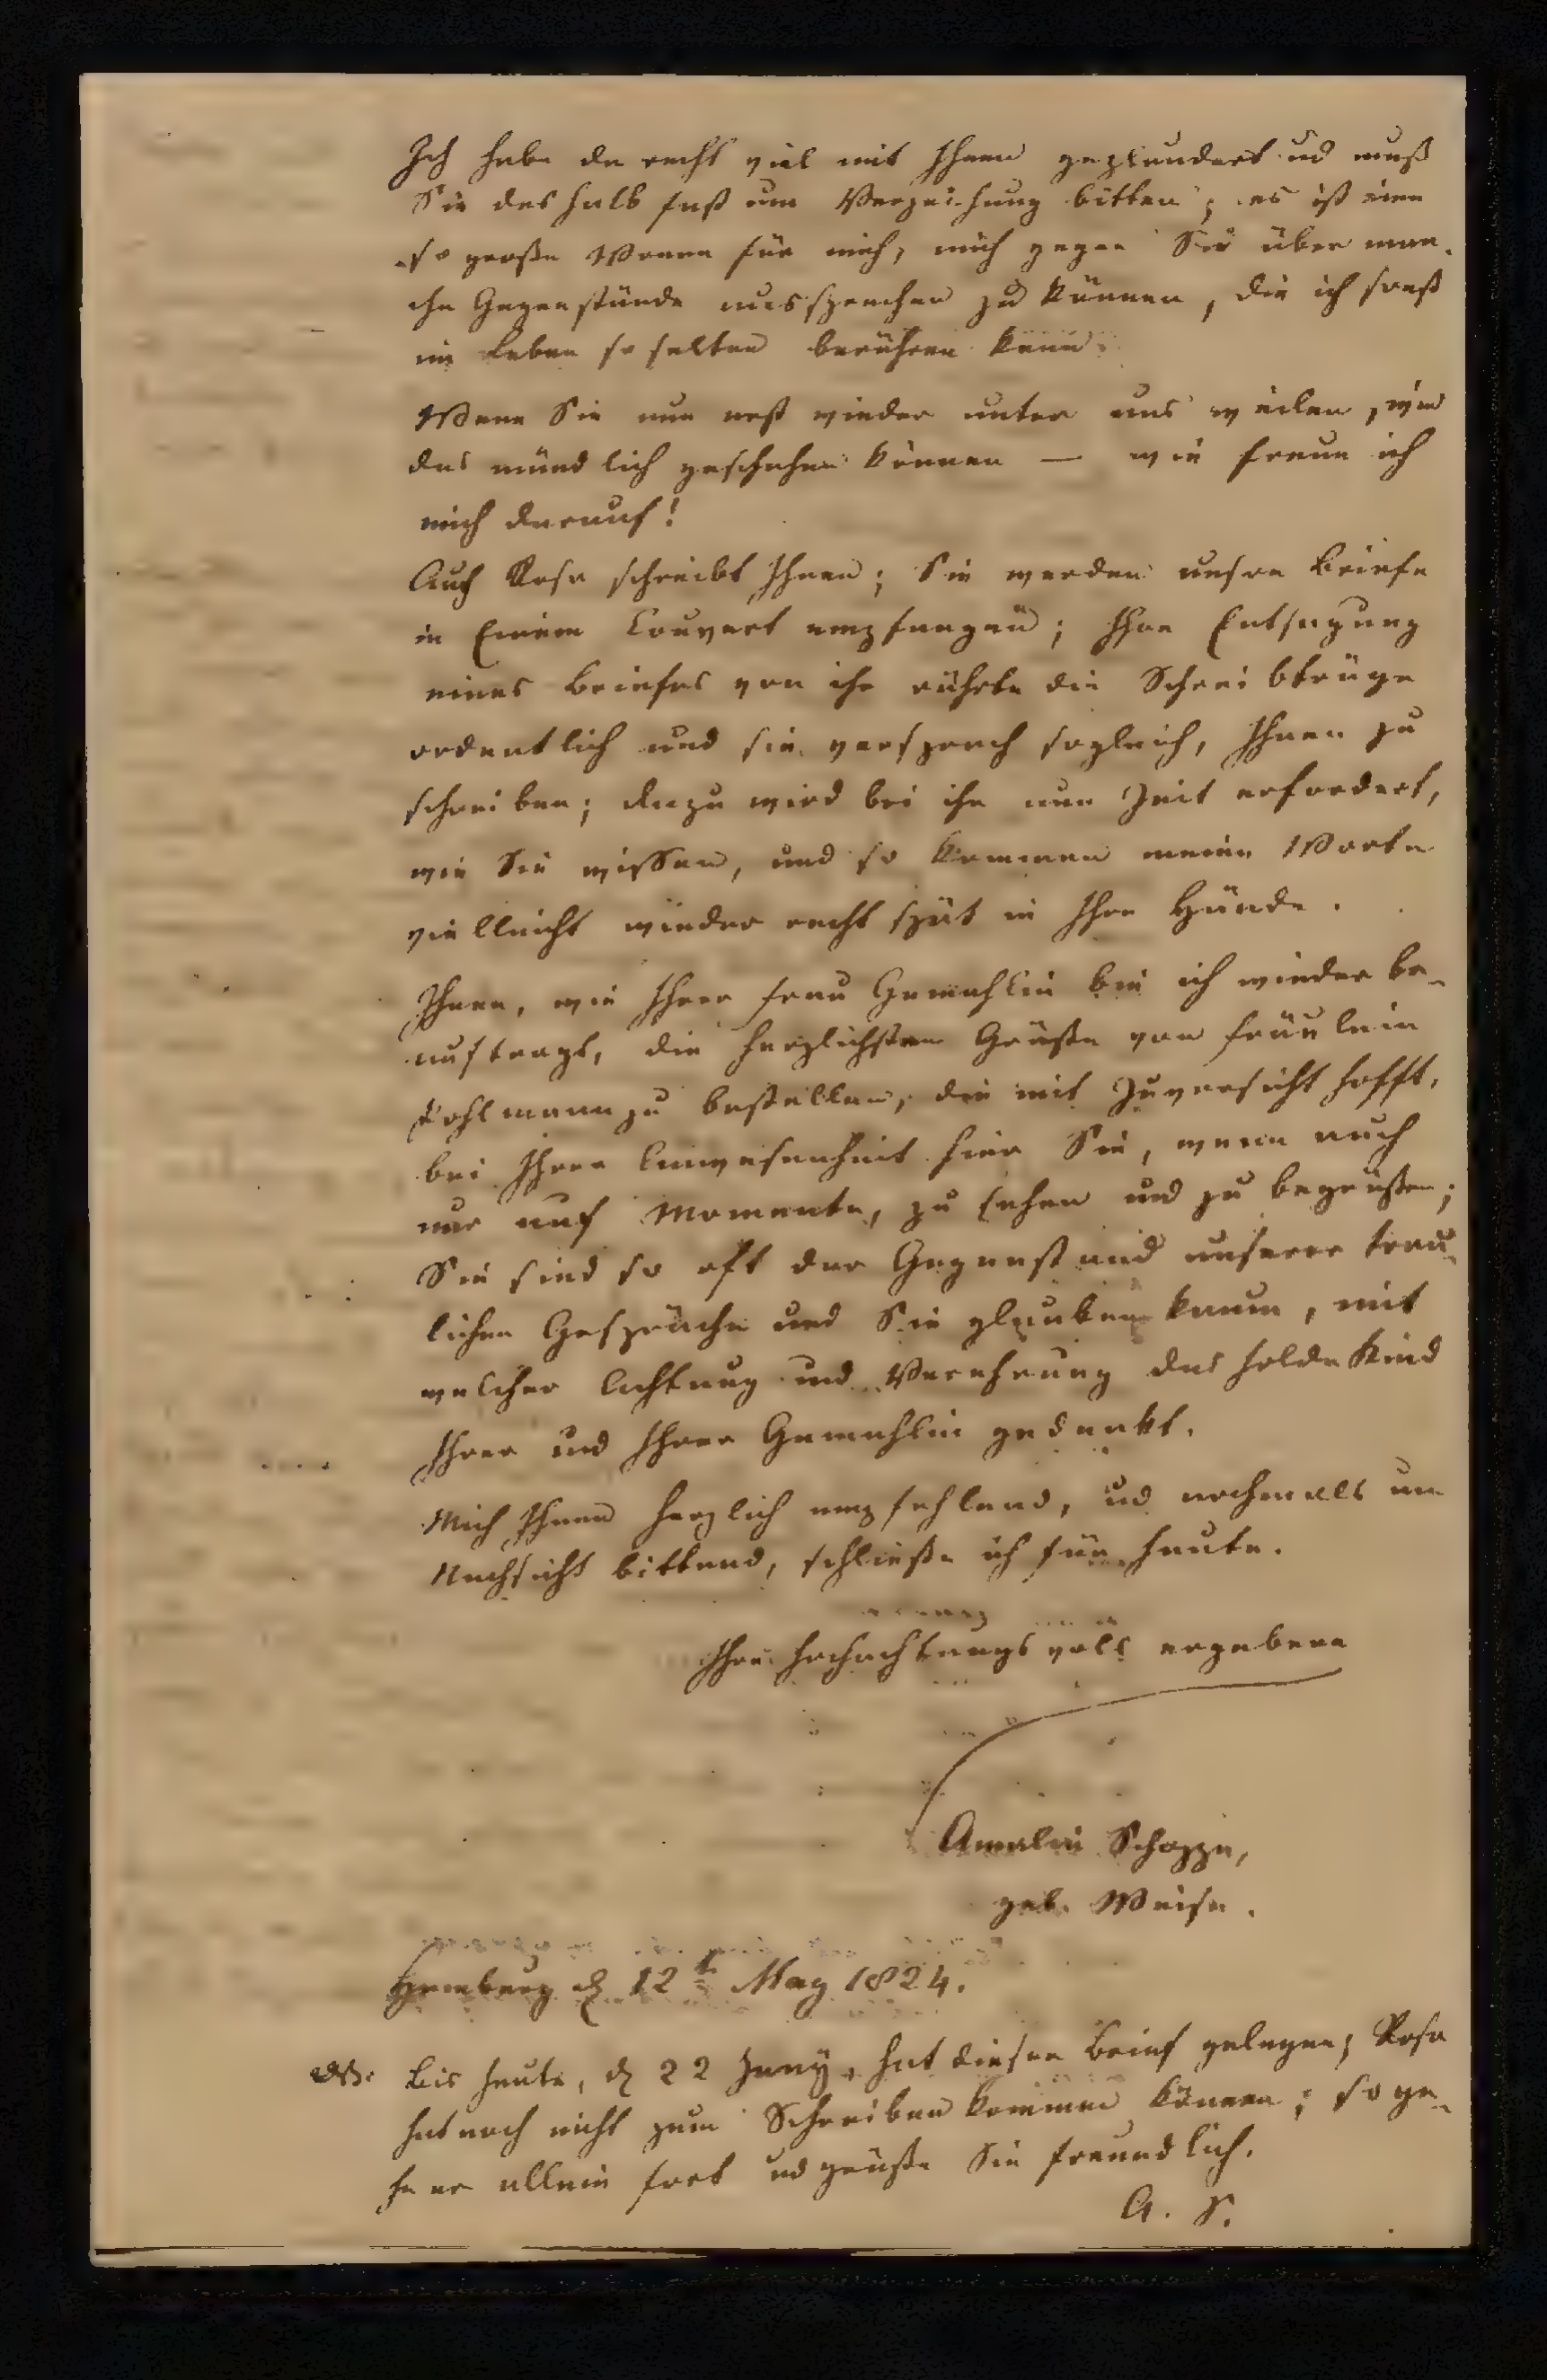 Ich habe da recht viel mit Ihnen geplaudert ud muß
Sie deshalb fast um Verzeihung bitten; es ist eine
so große Wonne für mich, mich gegen Sie über man-
che Gegenstände aussprechen zu können, die ich sonst
im Leben so selten berühren kann.
Wenn Sie nun erst wieder unter uns weilen, wird
das mündlich geschehen können — wie freue ich
mich darauf!
Auch Rosa schreibt Ihnen; Sie werden unsre Briefe
in Einem Couvert empfangen; Ihre Entsagung
eines Briefes von ihr rührte die Schreibträge
ordentlich und sie versprach sogleich, Ihnen zu
schreiben; dazu wird bei ihr nun Zeit erfordert,
wie Sie wissen, und so kommen meine Worte
vielleicht wieder recht spät in Ihre Hände.
Ihnen, wie Ihrer Frau Gemahlin bin ich wieder be-
auftragt, die herzlichsten Grüße von Fräulein
Pohlmann zu bestellen, die mit Zuversicht hofft,
bei Ihrer Anwesenheit hier Sie, wenn auch
nur auf Momente, zu sehen und zu begrüßen;
Sie sind so oft der Gegenstand unserer trau-
lichen Gespräche und Sie glauben kaum, mit
welcher Achtung und Verehrung das holde Kind
Ihrer und Ihrer Gemahlin gedenkt.
Mich Ihnen herzlich empfehlend, ud nochmals um
Nachsicht bittend, schließe ich für heute.
Ihre hochachtungsvoll ergebene
Amalie Schoppe,
geb. Weise.
Hamburg d 12t May 1824.
NB. Bis heute, d 22 Juny, hat dieser Brief gelegen; Rosa
hat noch nicht zum Schreiben kommen können; so ge-
he er allein fort ud grüße Sie freundlich.
A. S.